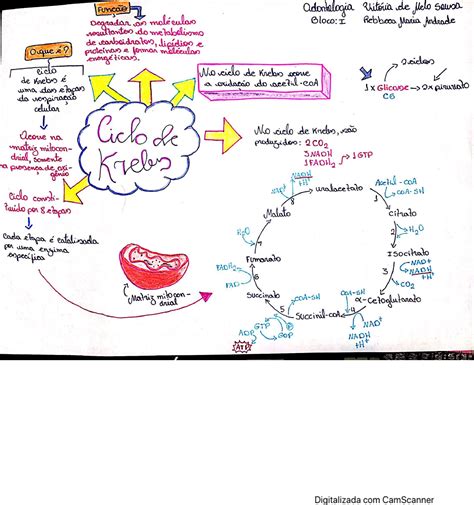 Função
Degradar as moléculas
resultantes do metabolismo
de carboidratos, lipídios e
proteínas e formar moléculas
energéticas.
Odontologia Vitória de Melo Sousa
Bloco: I Rebbeca Maria Andrade
O que é?
Ciclo
de Krebs é
uma das etapas
da respiração
celular
Ocorre na
matriz mitocon-
drial, somente
na presença de oxi-
gênio
Ciclo consti-
tuído por 8 etapas
Cada etapa é catalisada
por uma enzima
específica
Ciclo de
Krebs
No ciclo de Krebs ocorre
a oxidação do acetil-coA
2 ciclos
1x Glicose → 2x piruvato
C6
No ciclo de Krebs, são
produzidos: 2CO2
3NADH
1FADH2
1GTP
Matriz mitocon-
drial
Oxalacetato
Acetil-coA
COA-SH
1
Citrato
2
H2O
Isocitrato
3
NAD+
NADH
+H+
CO2
α-Cetoglutarato
4
COA-SH
NAD+
NADH
+H+
Succinil-coA
5
COA-SH
P
GTP
GDP
ADP
ATP
Succinato
6
FAD
FADH2
Fumarato
7
H2O
Malato
8
NADH
+H+
Digitalizada com CamScanner